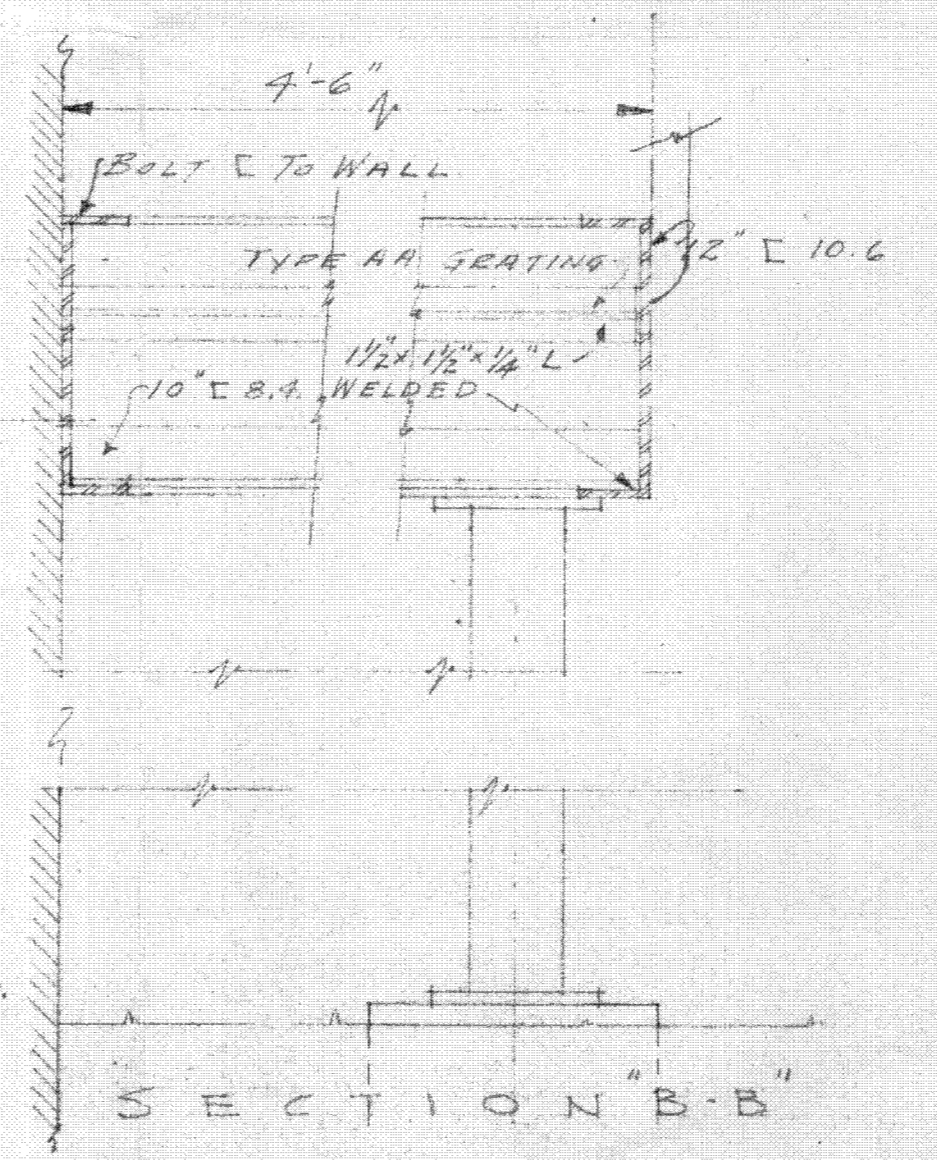 4'-6"
BOLT [ TO WALL
TYPE AA GRATING
12" [ 10.6
1½" x 1½" x ¼" L
10" [ 8.4
WELDED
SECTION "B-B"